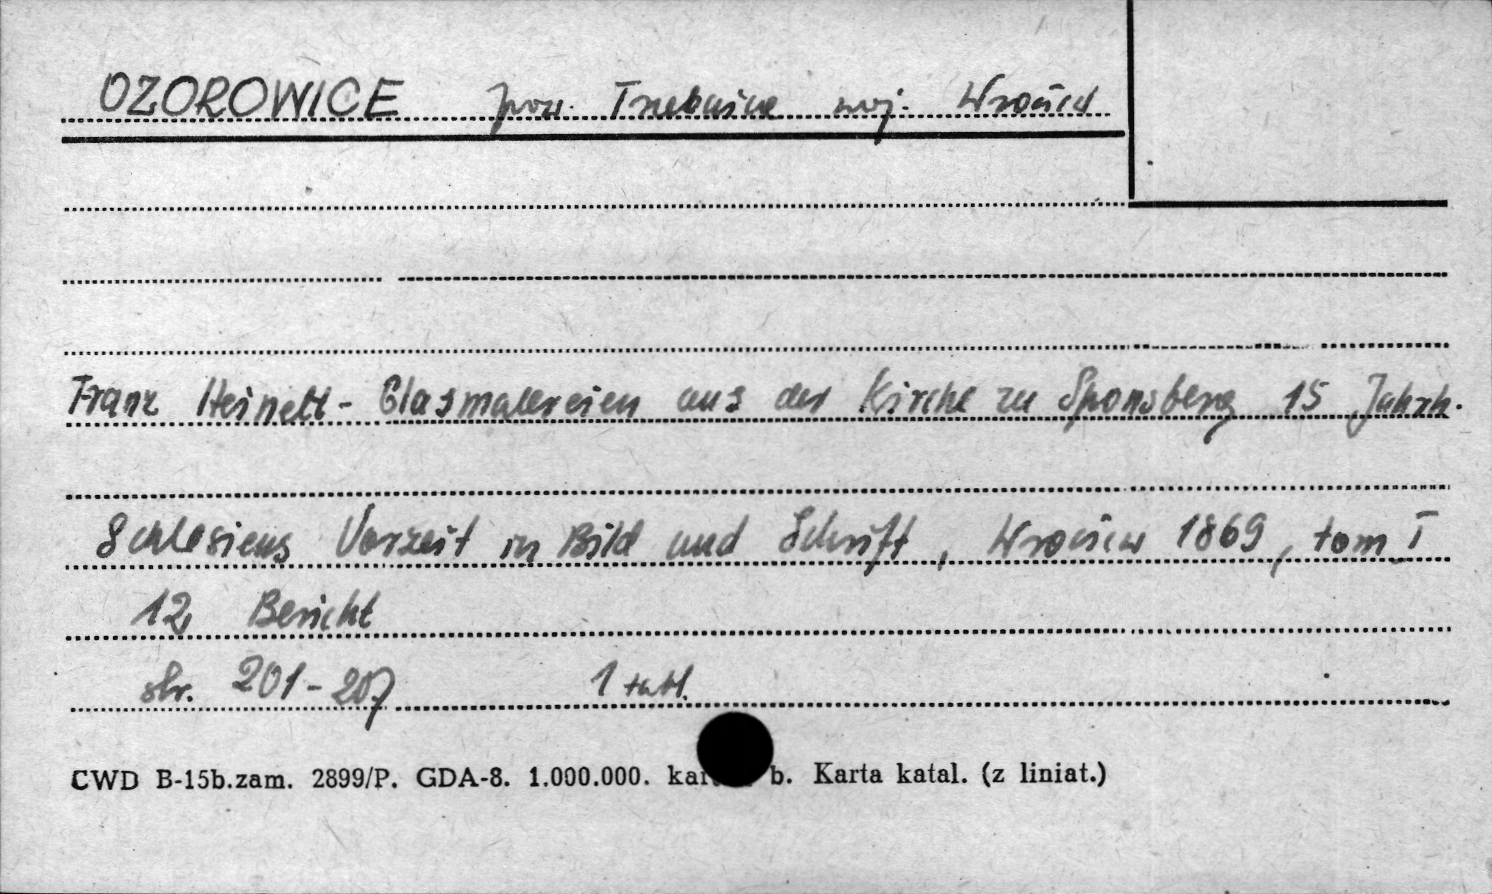 OZOROWICE pow. Trzebnica woj. Wrocław
Franz Heinelt - Glasmalereien aus der Kirche zu Sponsberg 15 Jahrh.
Schlesiens Vorzeit in Bild und Schrift, Wrocław 1869, tom I
12 Bericht
str. 201-207 1 tabl.
CWD B-15b.zam. 2899/P. GDA-8. 1.000.000. b. Karta katal. (z liniat.)